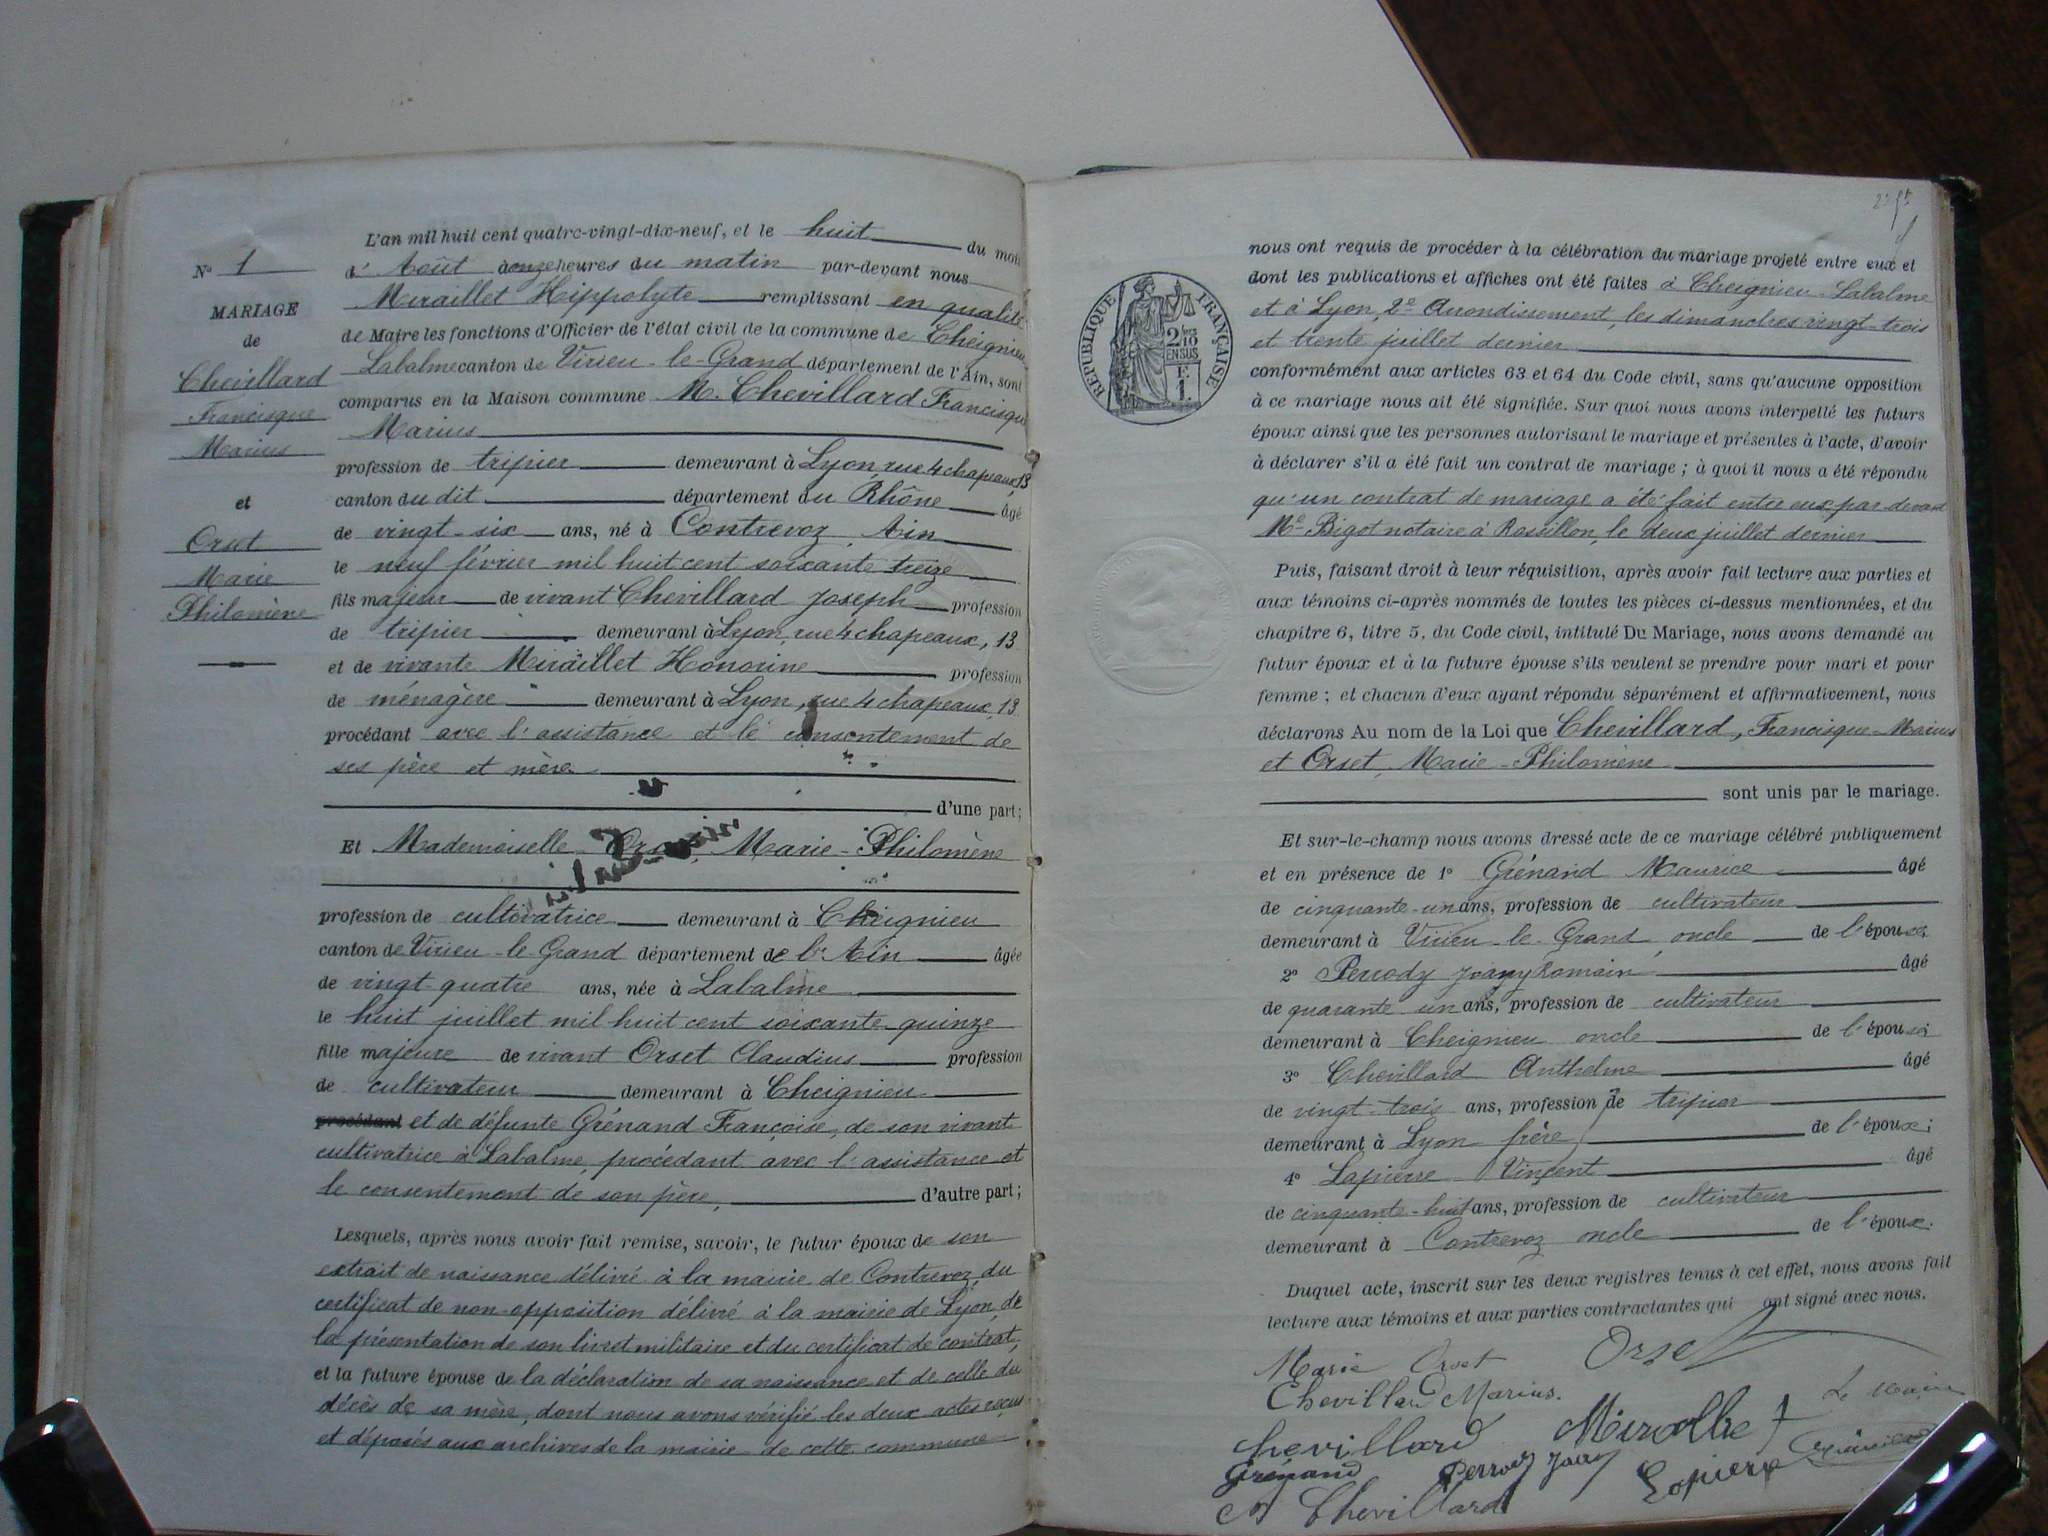 N° 1
MARIAGE
de
Chevillard
Francisque
Marius
et
Orset
Marie
Philomène
L'an mil huit cent quatre-vingt-dix-neuf, et le huit du mois
d' Août à onze heures du matin par-devant nous
Miraillet Hippolyte remplissant en qualité
de Maire les fonctions d'Officier de l'état civil de la commune de Cheignieu
Labalme canton de Virieu-le-Grand département de l'Ain, sont
comparus en la Maison commune M. Chevillard Francisque
Marius
profession de tripier demeurant à Lyon, rue 4 chapeaux, 13
canton du dit département du Rhône âgé
de vingt-six ans, né à Contrevoz, Ain
le neuf février mil huit cent soixante treize
fils majeur de vivant Chevillard Joseph profession
de tripier demeurant à Lyon, rue 4 chapeaux, 13
et de vivante Miraillet Honorine profession
de ménagère demeurant à Lyon, rue 4 chapeaux, 13
procédant avec l'assistance et le consentement de
ses père et mère
d'une part;
Et Mademoiselle Orset Marie-Philomène
profession de cultivatrice demeurant à Cheignieu
canton de Virieu-le-Grand département de l'Ain âgée
de vingt-quatre ans, née à Labalme
le huit juillet mil huit cent soixante-quinze
fille majeure de vivant Orset Claudius profession
de cultivateur demeurant à Cheignieu
procédant et de défunte Grénand Françoise, de son vivant
cultivatrice à Labalme, procédant avec l'assistance et
le consentement de son père, d'autre part;
Lesquels, après nous avoir fait remise, savoir, le futur époux de son
extrait de naissance délivré à la mairie de Contrevoz, du
certificat de non-opposition délivré à la mairie de Lyon, de
la présentation de son livret militaire et du certificat de contrat,
et la future épouse de la déclaration de sa naissance et de celle du
décès de sa mère, dont nous avons vérifié les deux actes reçus
et déposés aux archives de la mairie de cette commune
RÉPUBLIQUE FRANÇAISE
2/10
EN SUS
F.
1
nous ont requis de procéder à la célébration du mariage projeté entre eux et
dont les publications et affiches ont été faites à Cheignieu-Labalme
et à Lyon, 2e Arrondissement, les dimanches vingt-trois
et trente juillet dernier
conformément aux articles 63 et 64 du Code civil, sans qu'aucune opposition
à ce mariage nous ait été signifiée. Sur quoi nous avons interpellé les futurs
époux ainsi que les personnes autorisant le mariage et présentes à l'acte, d'avoir
à déclarer s'il a été fait un contrat de mariage; à quoi il nous a été répondu
qu'un contrat de mariage a été fait entre eux par-devant
Me Bigot notaire à Rossillon, le deux juillet dernier
Puis, faisant droit à leur réquisition, après avoir fait lecture aux parties et
aux témoins ci-après nommés de toutes les pièces ci-dessus mentionnées, et du
chapitre 6, titre 5, du Code civil, intitulé Du Mariage, nous avons demandé au
futur époux et à la future épouse s'ils veulent se prendre pour mari et pour
femme; et chacun d'eux ayant répondu séparément et affirmativement, nous
déclarons Au nom de la Loi que Chevillard, Francisque-Marius
et Orset, Marie-Philomène
sont unis par le mariage.
Et sur-le-champ nous avons dressé acte de ce mariage célébré publiquement
et en présence de 1° Grénand Maurice âgé
de cinquante-un ans, profession de cultivateur
demeurant à Virieu-le-Grand, oncle de l'épouse;
2° Perrody Joany Romain âgé
de quarante un ans, profession de cultivateur
demeurant à Cheignieu oncle de l'épouse;
3° Chevillard Anthelme âgé
de vingt-trois ans, profession de tripier
demeurant à Lyon frère de l'époux;
4° Lapierre Vincent âgé
de cinquante-huit ans, profession de cultivateur
demeurant à Contrevoz oncle de l'époux.
Duquel acte, inscrit sur les deux registres tenus à cet effet, nous avons fait
lecture aux témoins et aux parties contractantes qui ont signé avec nous.
Marie Orset
Orset
Chevillard Marius.
Le Maire
Chevillard
Grénand
Perrody Joany
Lapierre
A Chevillard